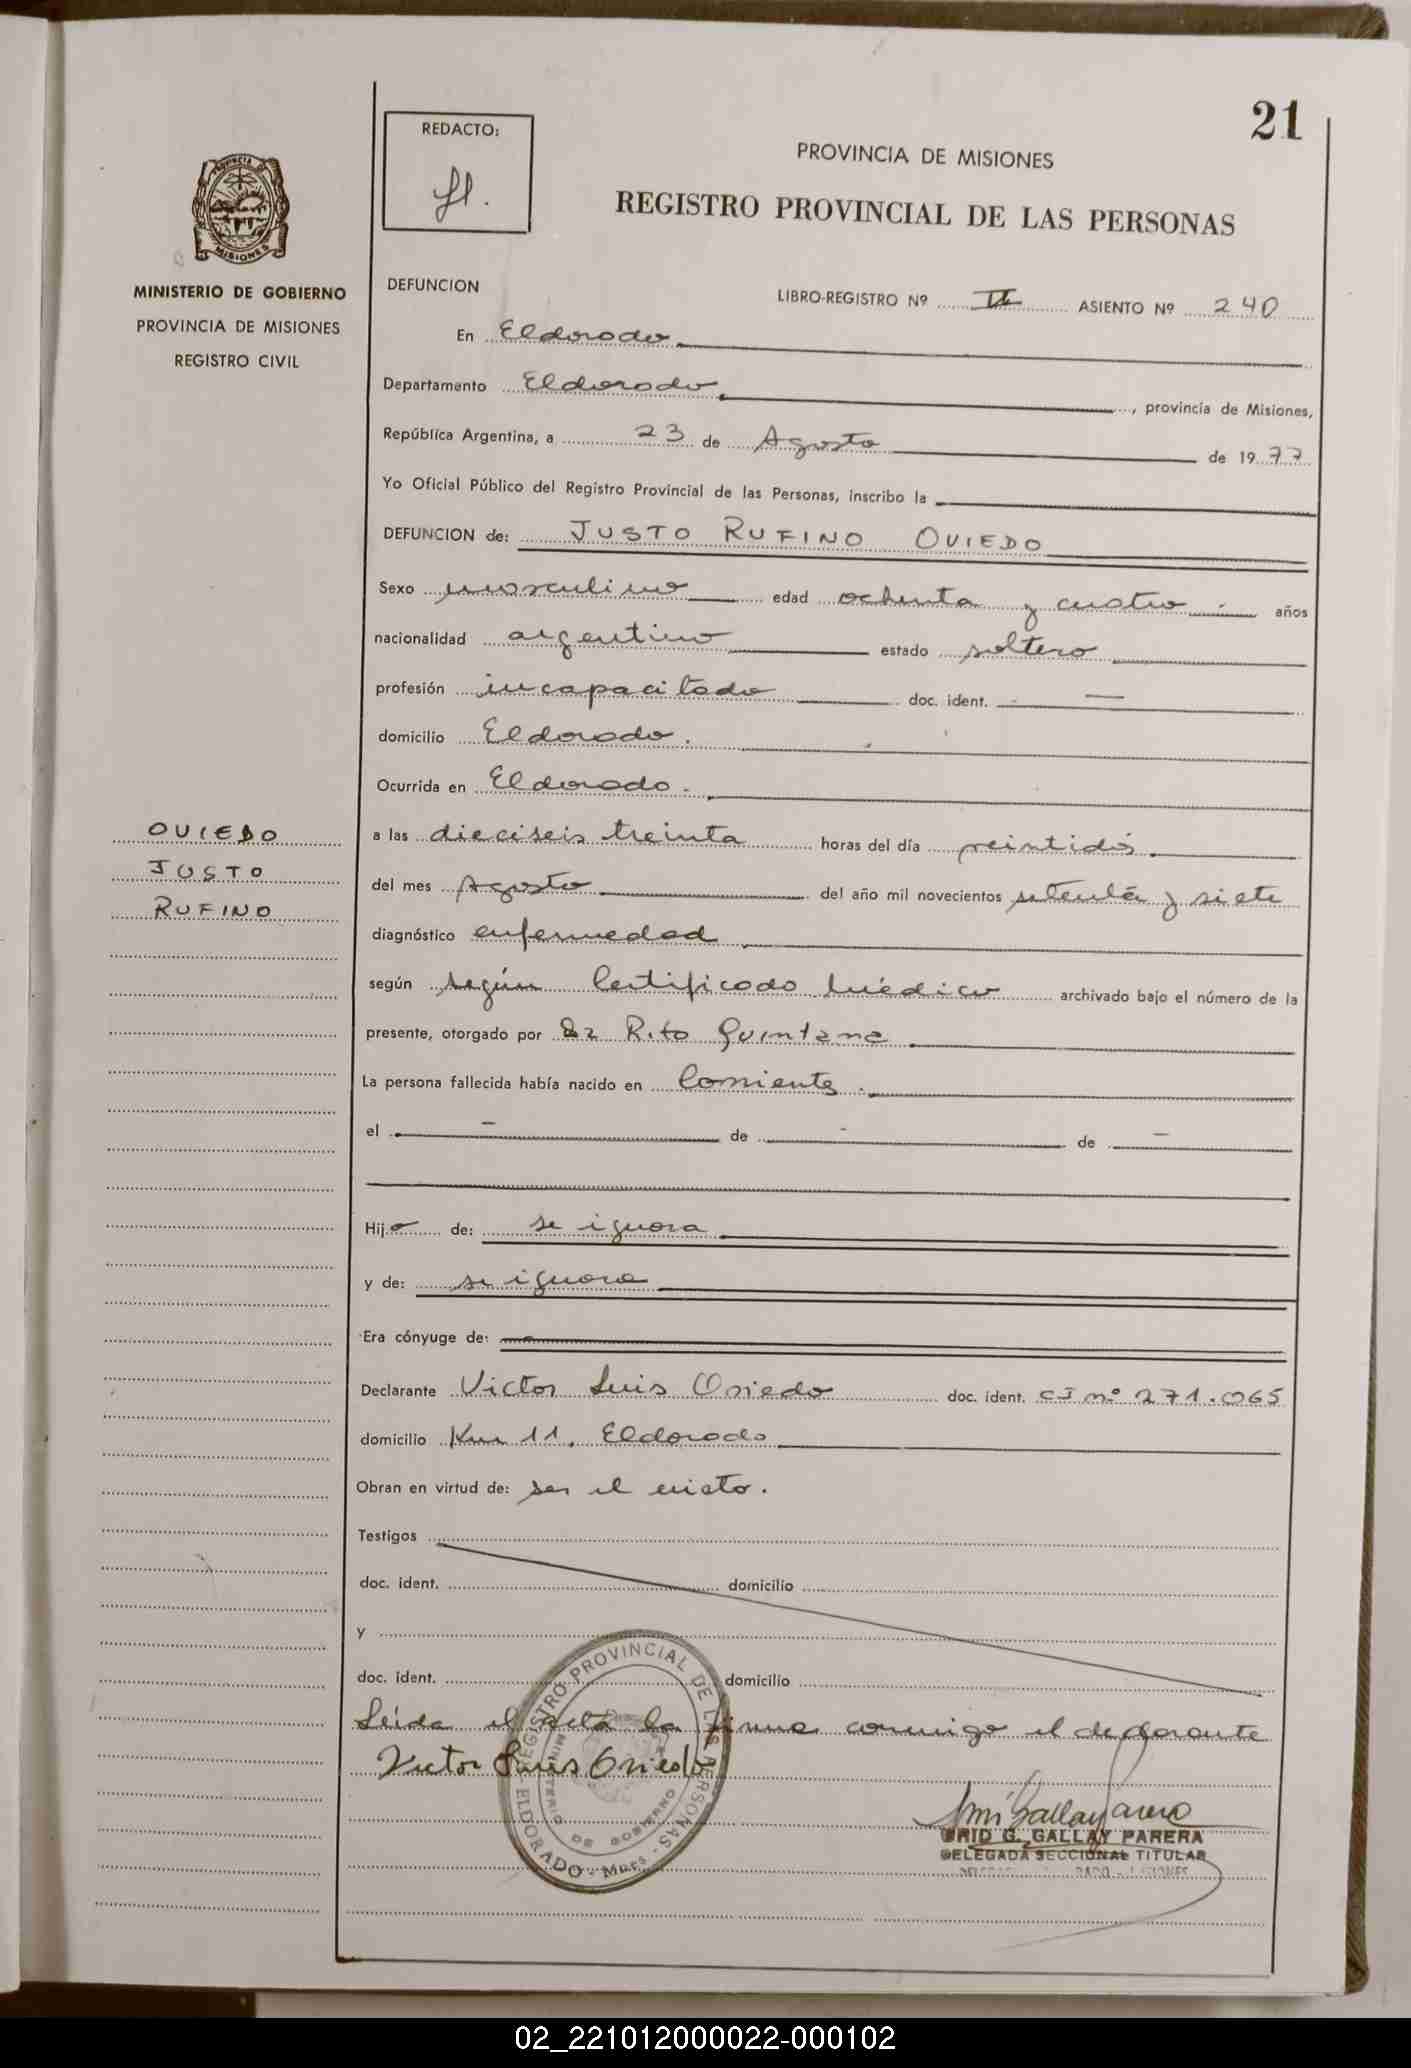 21
REDACTO:
PROVINCIA DE MISIONES
REGISTRO PROVINCIAL DE LAS PERSONAS
PROVINCIA DE
MISIONES
MINISTERIO DE GOBIERNO
PROVINCIA DE MISIONES
REGISTRO CIVIL
DEFUNCION
LIBRO-REGISTRO Nº II ASIENTO Nº 240
En Eldorado
Departamento Eldorado, provincia de Misiones,
República Argentina, a 23 de Agosto de 1977
Yo Oficial Público del Registro Provincial de las Personas, inscribo la
DEFUNCION de: JUSTO RUFINO OVIEDO
Sexo masculino edad ochenta y cuatro años
nacionalidad argentino estado soltero
profesión incapacitado doc. ident. —
domicilio Eldorado.
Ocurrida en Eldorado.
OVIEDO
JUSTO
RUFINO
a las dieciseis treinta horas del día veintidós
del mes Agosto del año mil novecientos setenta y siete
diagnóstico enfermedad
según según Certificado Médico archivado bajo el número de la
presente, otorgado por Dr Rito Quintana
La persona fallecida había nacido en Corrientes.
el - de - de -
Hijo de: se ignora
y de: se ignora
Era cónyuge de:
Declarante Victor Luis Oviedo doc. ident. CI nº 271.065
domicilio Km 11. Eldorado
Obran en virtud de: ser el nieto.
Testigos
doc. ident. domicilio
y
doc. ident. domicilio
Leída el acta la firma conmigo el declarante
Victor Luis Oviedo
REGISTRO PROVINCIAL DE LAS PERSONAS
MINISTERIO DE GOBIERNO
ELDORADO - Mnes.
G. GALLAY PARERA
DELEGADA SECCIONAL TITULAR
02_221012000022-000102